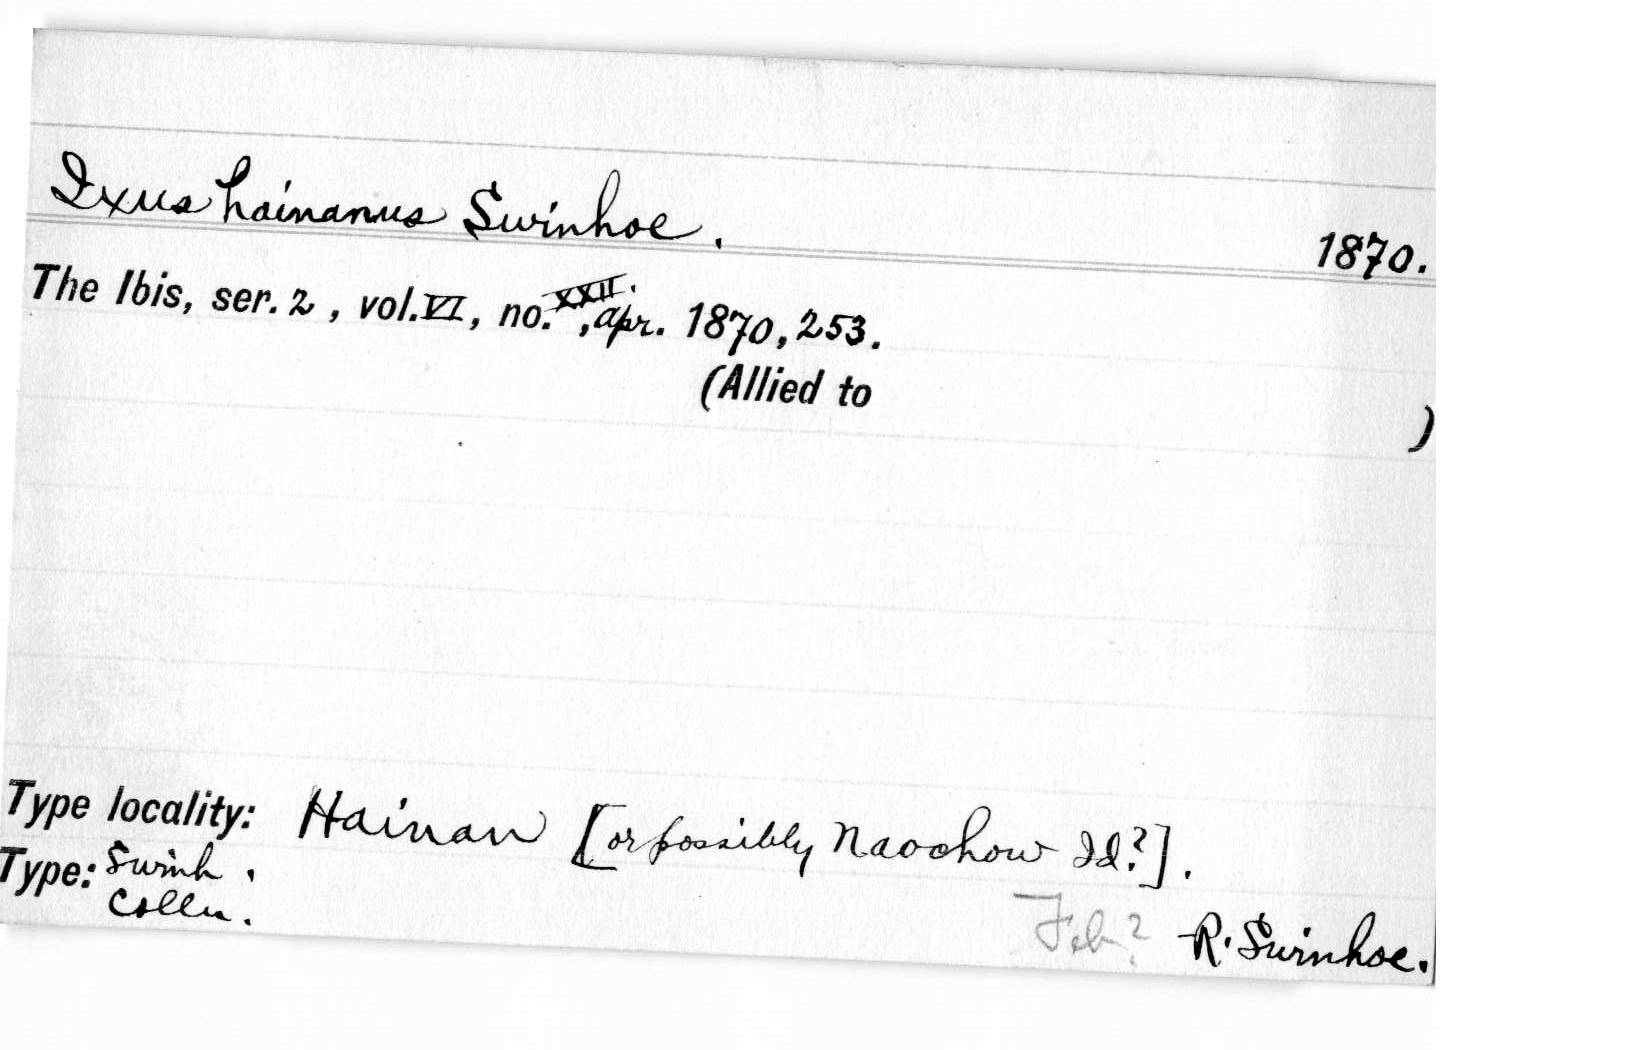 Ixus hainanus Swinhoe.
1870.
The Ibis, ser. 2, vol. VI, no. XXII., Apr. 1870, 253.
(Allied to )
Type locality: Hainan [or possibly Naochow Id?].
Type: Swinh.
Colln.
Feb? R. Swinhoe.